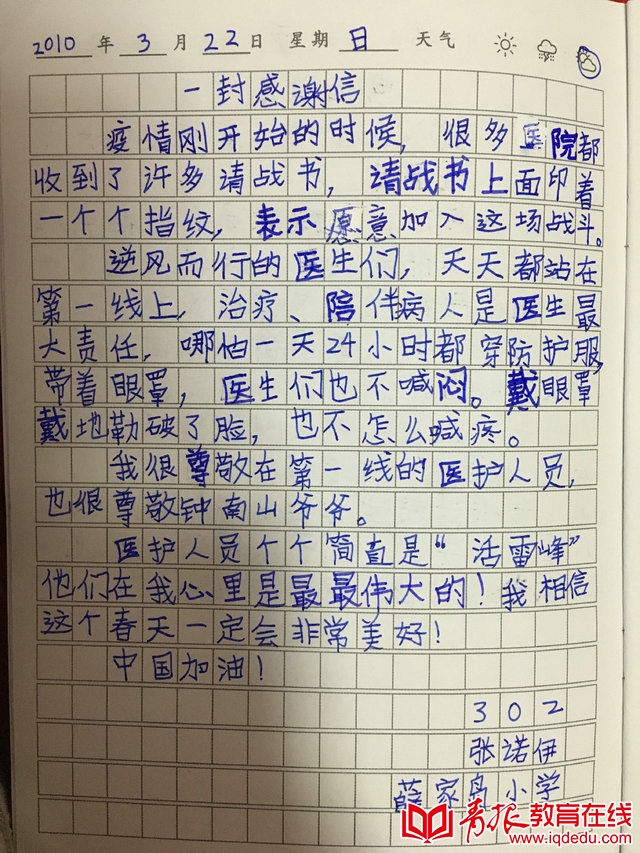 2010 年 3 月 22 日 星期 日 天气
一封感谢信
疫情刚开始的时候，很多医院都
收到了许多请战书，请战书上面印着
一个个指纹，表示愿意加入这场战斗。
逆风而行的医生们，天天都站在
第一线上，治疗、陪伴病人是医生最
大责任，哪怕一天24小时都穿防护服，
带着眼罩，医生们也不喊闷。戴眼罩
戴地勒破了脸，也不怎么喊疼。
我很尊敬在第一线的医护人员，
也很尊敬钟南山爷爷。
医护人员个个简直是“活雷峰”
他们在我心里是最最伟大的！我相信
这个春天一定会非常美好！
中国加油！
302
张诺伊
薛家岛小学
青报教育在线
www.iqdedu.com